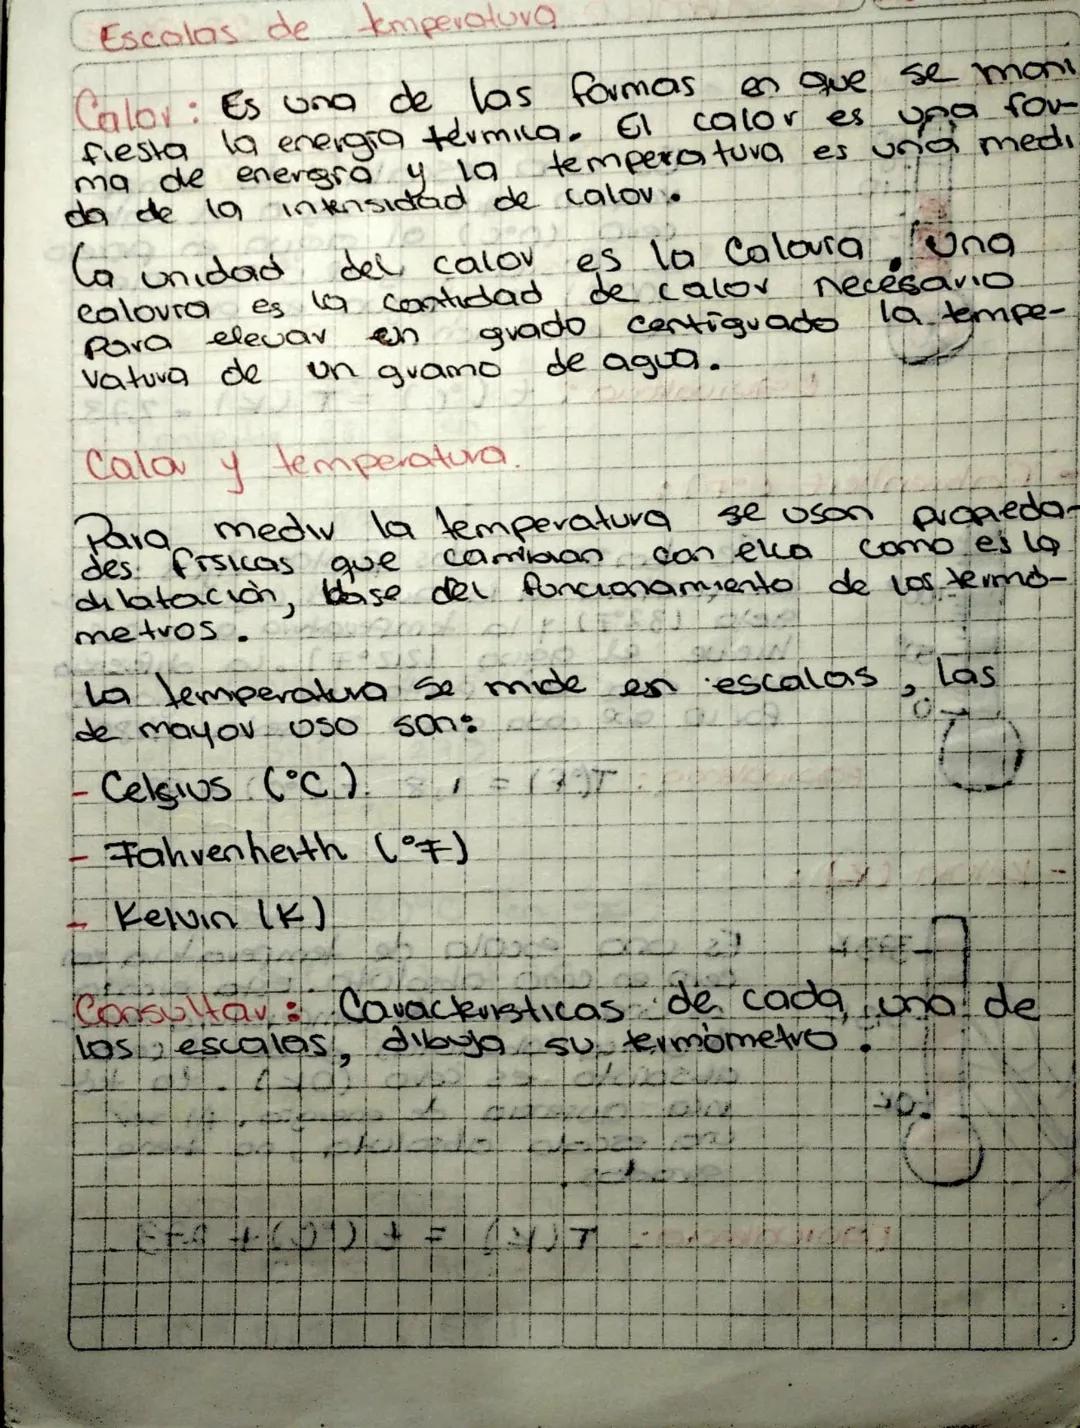 Escalas de temperatura
Calor: Es una de las formas en que se mani
fiesta la energía térmica. El calor es una for-
ma de energía y la temperatura es una medi
da de la intensidad de calor.
La unidad del calor es la Caloría. Una
caloría es la cantidad de calor necesario
para elevar en grado centiguado la tempe-
ratura de un gramo de agua.
Calor y temperatura.
Para medir la temperatura se usan propieda-
des físicas que cambian con ella como es la
dilatación, base del funcionamiento de los termó-
metros.
La temperatura se mide en escalas, las
de mayor uso son:
- Celsius (°C).
- Fahrenheith (°F)
- Kelvin (K)
Consultar: Características de cada una de
las escalas, dibuja su termómetro.